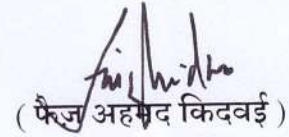 ( फैज़ अहमद किदवई )